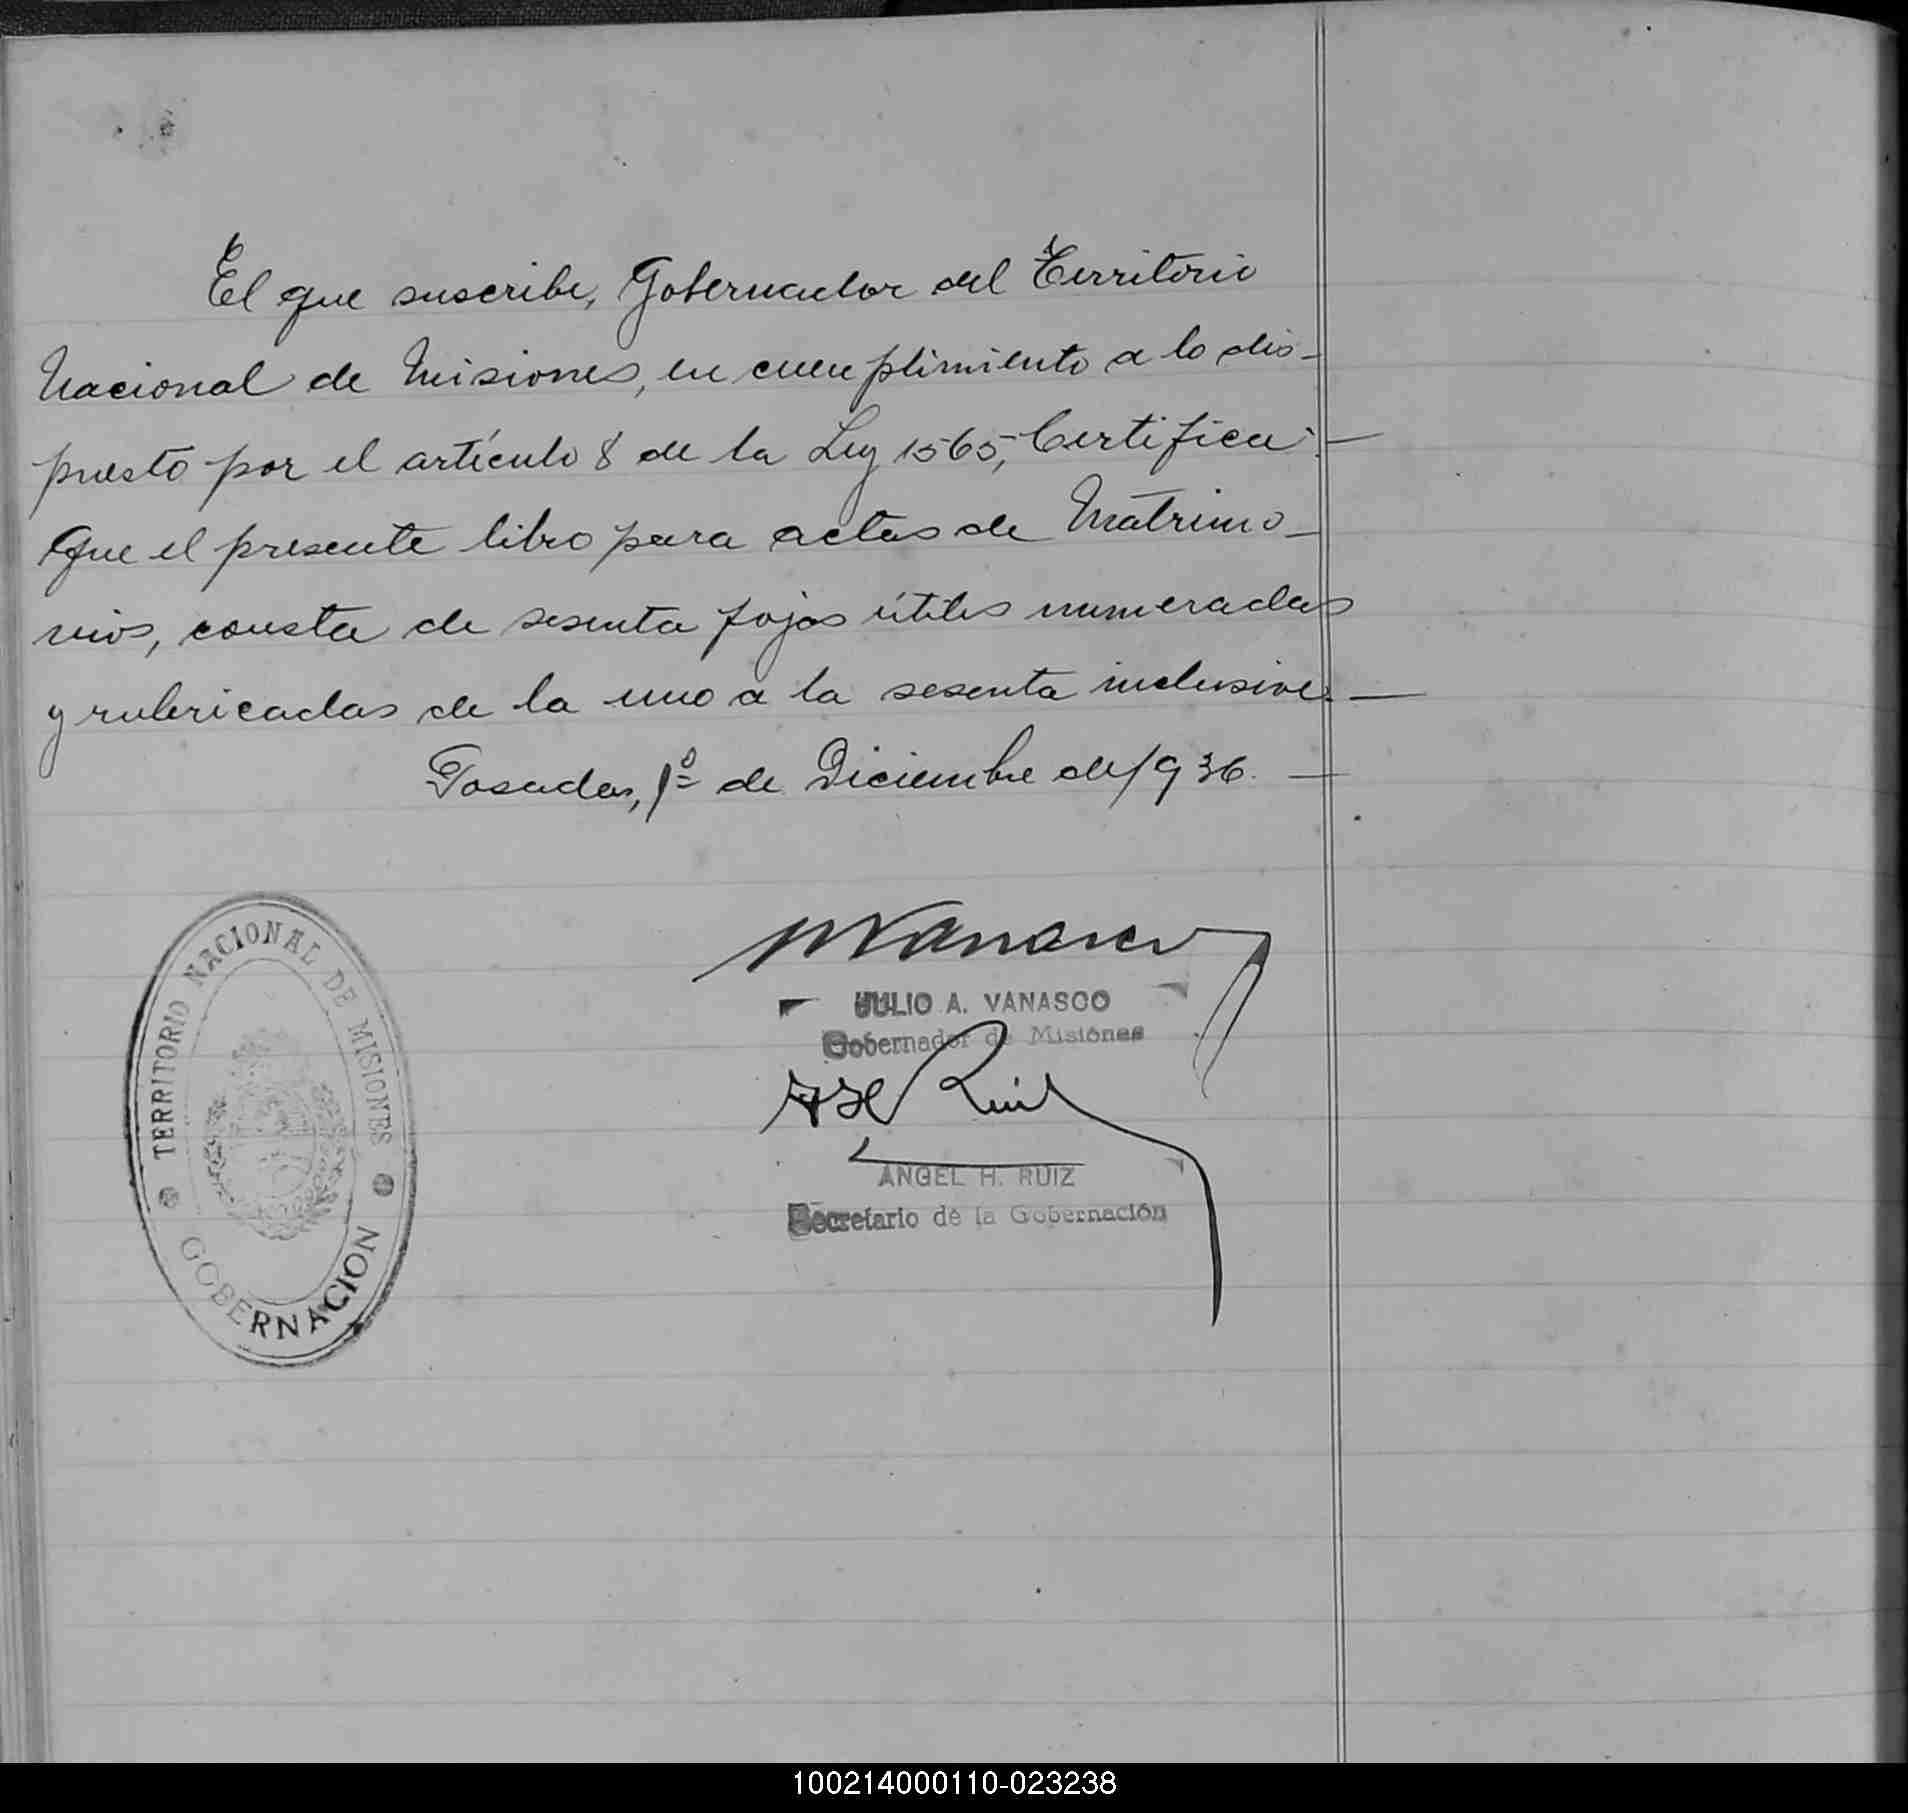 El que suscribe, Gobernador del Territorio
Nacional de Misiones, en cumplimiento a lo dis-
puesto por el artículo 8 de la Ley 1565, Certifica: —
Que el presente libro para actas de Matrimo-
nios, consta de sesenta fojas útiles numeradas
y rubricadas de la uno a la sesenta inclusive. —
Posadas, 1º de Diciembre de 1936. —
Vanasco
JULIO A. VANASCO
Gobernador de Misiones
A H Ruiz
ANGEL H. RUIZ
Secretario de la Gobernación
TERRITORIO NACIONAL DE MISIONES
GOBERNACION
100214000110-023238